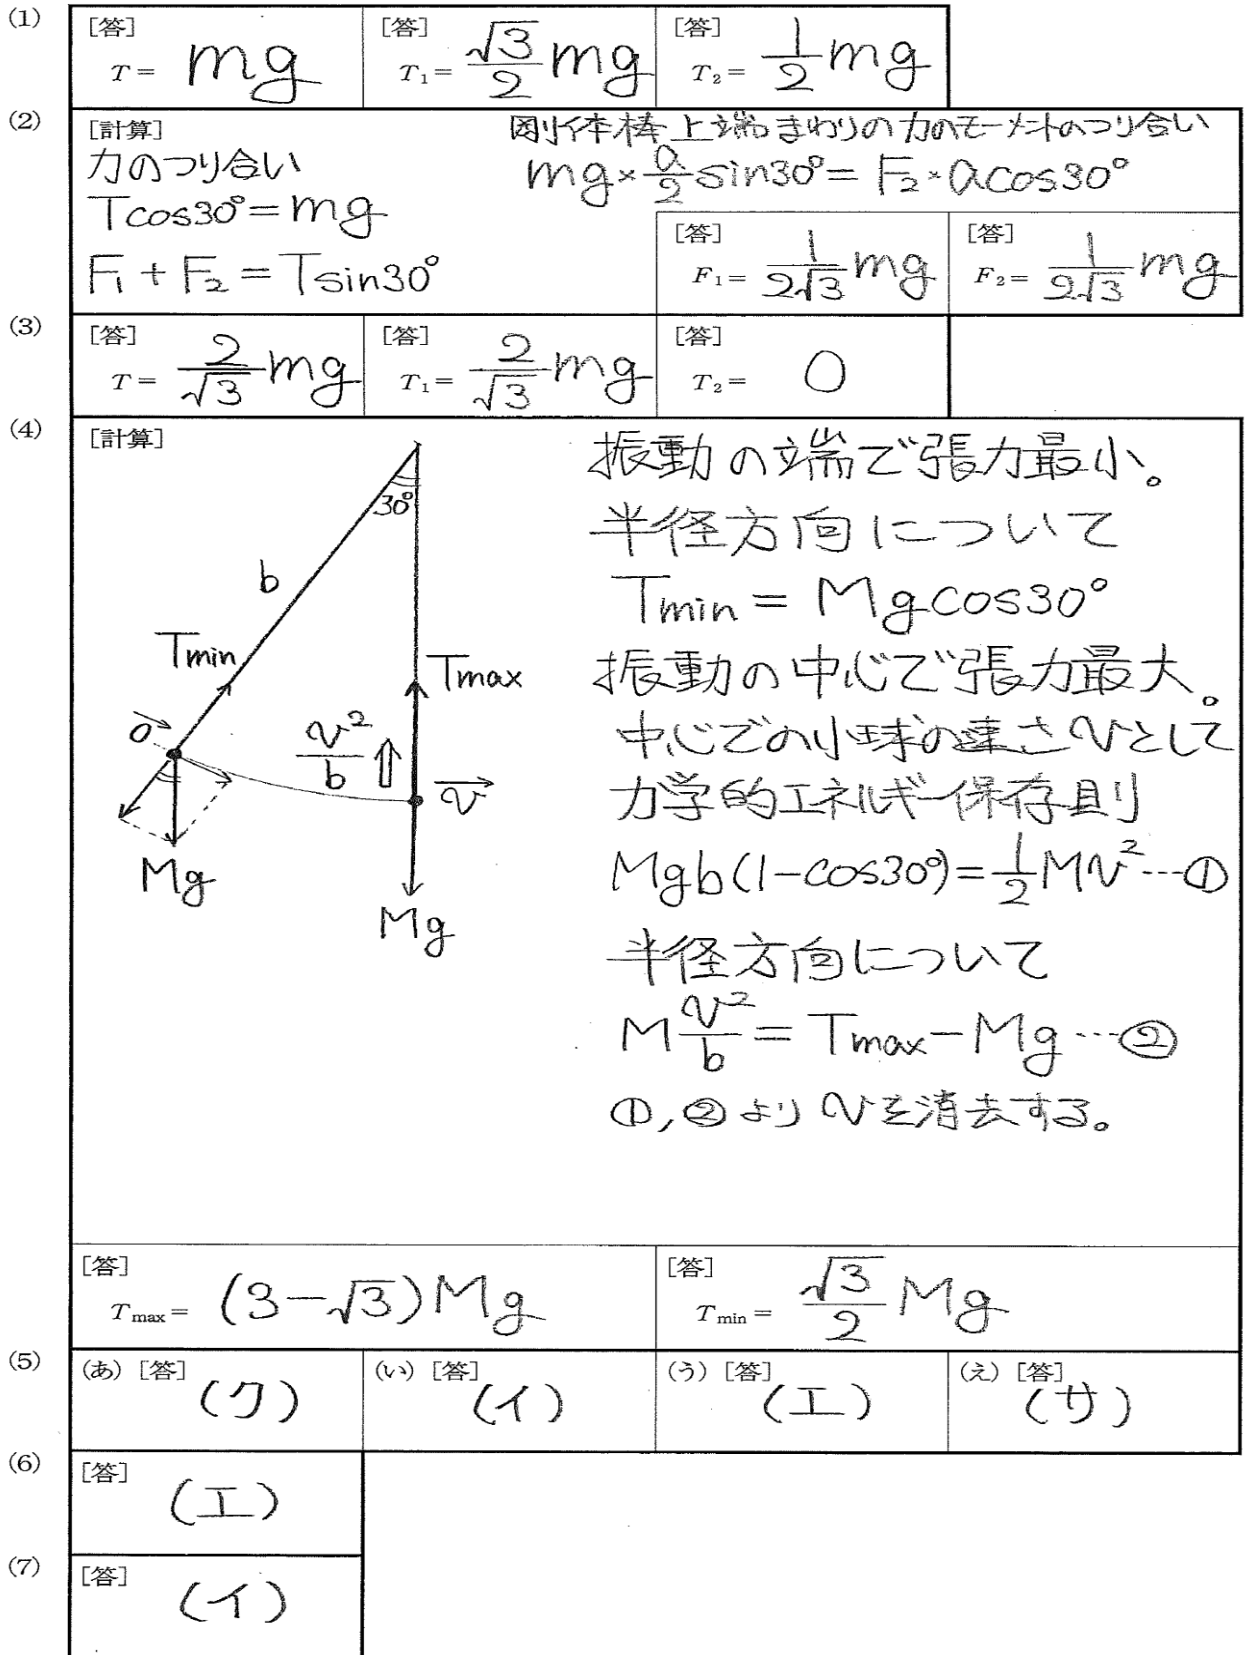 (1)
[答] T = mg [答] T₁ = √3/2 mg [答] T₂ = 1/2 mg
(2)
[計算]
力のつり合い
Tcos30° = mg
F₁ + F₂ = Tsin30°
剛体棒上端まわりの力のモーメントのつり合い
mg × a/2 sin30° = F₂ × a cos30°
[答] F₁ = 1/(2√3) mg [答] F₂ = 1/(2√3) mg
(3)
[答] T = 2/√3 mg [答] T₁ = 2/√3 mg [答] T₂ = 0
(4)
[計算]
30°
b
Tmin
Tmax
0→
v²/b ⇧
v→
Mg
Mg
振動の端で張力最小。
半径方向について
Tmin = Mgcos30°
振動の中心で張力最大。
中心での小球の速さvとして
力学的エネルギー保存則
Mgb(1-cos30°) = 1/2 Mv² …①
半径方向について
M v²/b = Tmax - Mg …②
①,②よりvを消去する。
[答] Tmax = (3-√3)Mg [答] Tmin = √3/2 Mg
(5)
(あ) [答] (ク) (い) [答] (イ) (う) [答] (エ) (え) [答] (サ)
(6)
[答] (エ)
(7)
[答] (イ)